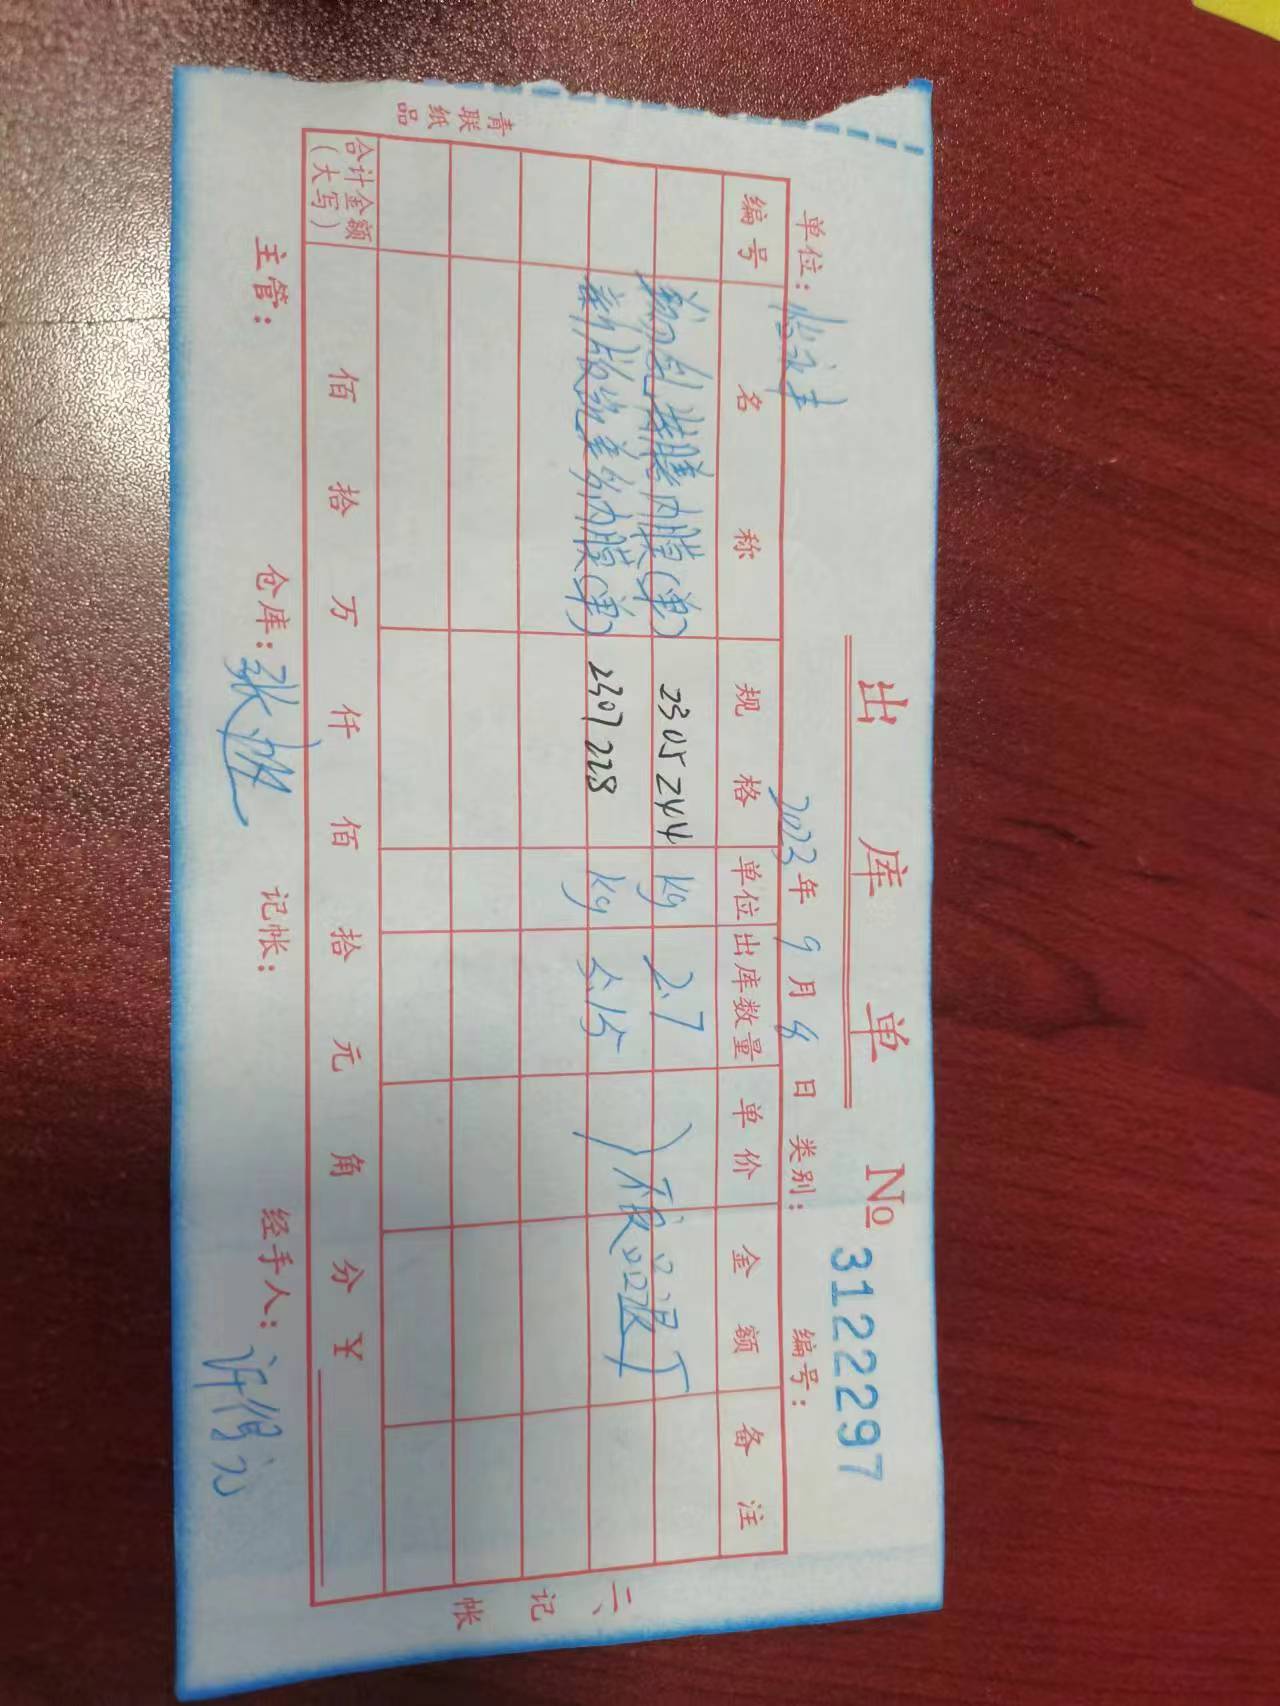 出库单 № 3122297
单位： 2023年9月8日 类别： 编号：
编号 名称 规格 单位 出库数量 单价 金额 备注
内膜(单) 2305244 kg 2.7
新版 内膜(单) 2307228 kg 5.15
退厂
合计金额（大写） 佰 拾 万 仟 佰 拾 元 角 分 ¥
主管： 仓库：张 记帐： 经手人：许
青联纸品
二、记帐